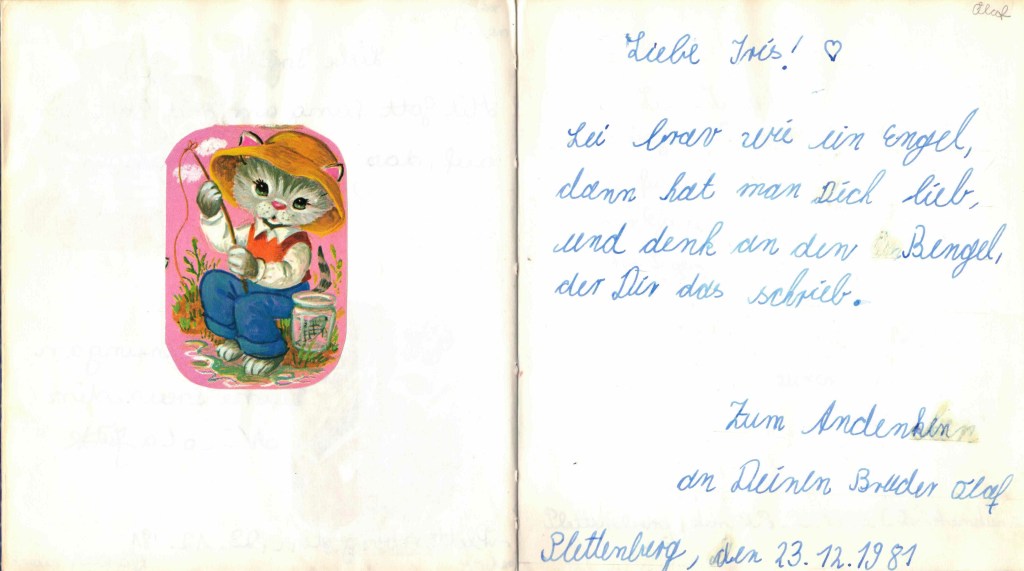 Olaf
Liebe Iris! ♡
Sei brav wie ein Engel,
dann hat man Dich lieb,
und denk an den Bengel,
der Dir das schrieb.
Zum Andenken
an Deinen Bruder Olaf
Plettenberg, den 23.12.1981